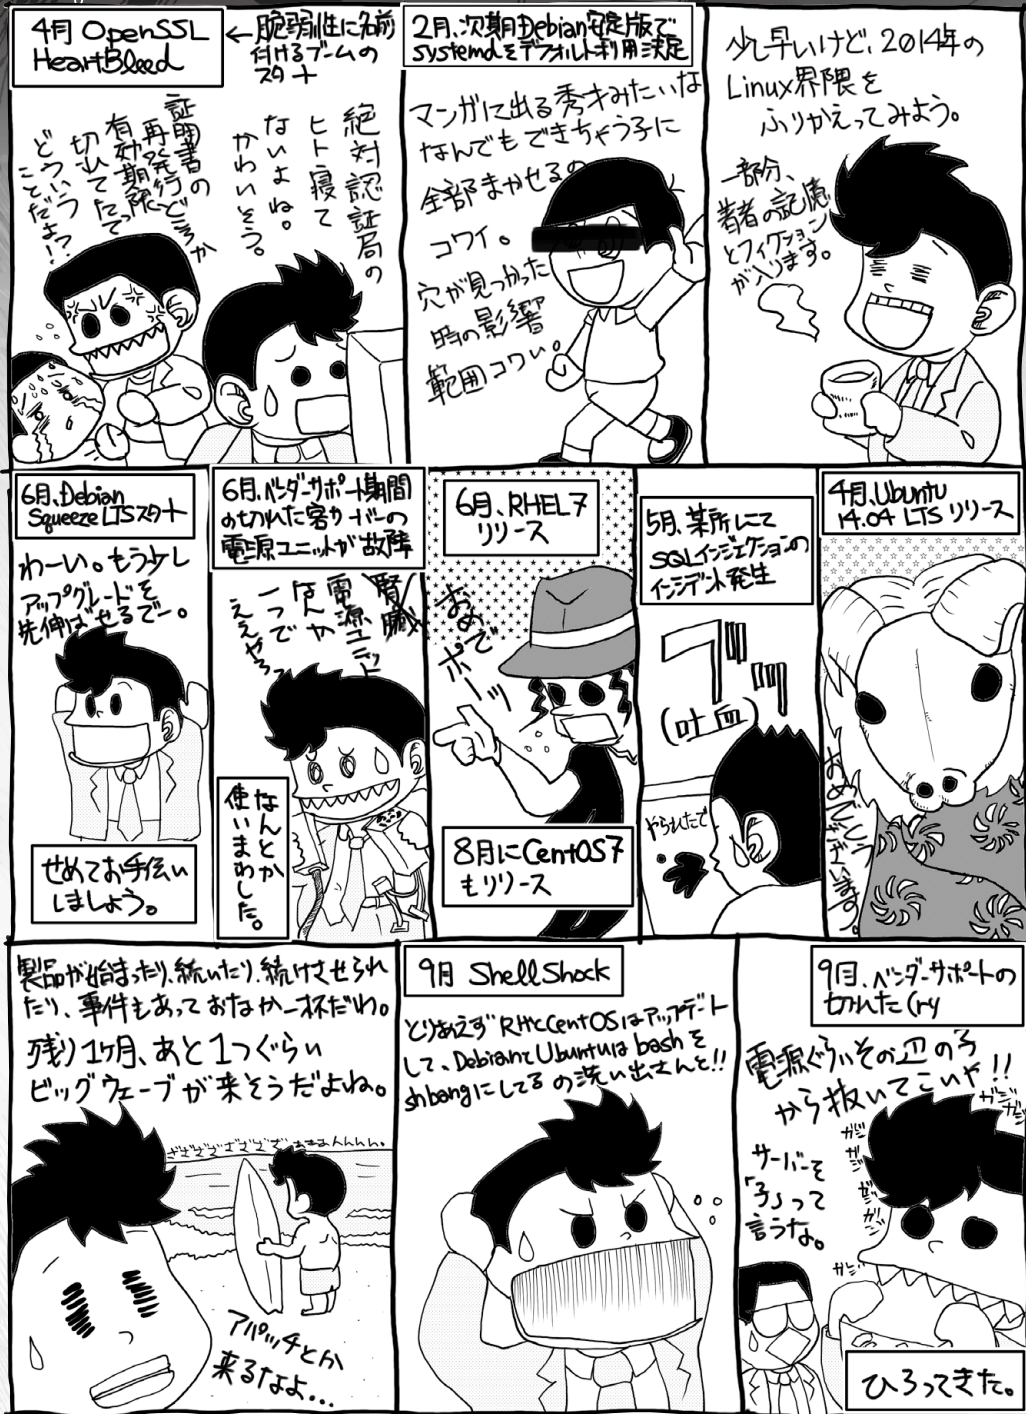 少し早いけど、2014年の
Linux界隈を
ふりかえってみよう。
一部分、
著者の記憶
とフィクション
が入ります。
2月、次期Debian安定版で
systemdをデフォルト利用決定
マンガに出る秀才みたいな
なんでもできちゃう子に
全部まかせるの
コワイ。
穴が見つかった
時の影響
範囲コワい。
4月 OpenSSL
HeartBleed
←脆弱性に名前
付けるブームの
スタート
絶対認証局の
ヒト寝て
ないよね。
かわいそう。
証明書の
再発行どころか
有効期限
切れてたって
どういう
ことだよ!?
4月、Ubuntu
14.04 LTS リリース
おめでとうございます。
5月、某所にて
SQLインジェクションの
インシデント発生
ブッ
(吐血)
やられたで
6月、RHEL7
リリース
おめで
ポーッ
8月にCentOS7
もリリース
6月、ベンダーサポート期間
の切れた客サーバーの
電源ユニットが故障
腎臓
電源ユニット
なんか
一つで
ええやろ
なんとか
使いまわした。
6月、Debian
Squeeze LTSスタート
わーい。もう少し
アップグレードを
先伸ばせるでー。
せめてお手伝い
しましょう。
9月、ベンダーサポートの
切れた(ry
電源ぐらいその辺の子
から抜いてこいや!!
ガジガジ
ガジ
ガジ
ガジ
ガジ
ガジ
サーバーを
「子」って
言うな。
ひろってきた。
9月 ShellShock
とりあえずRHとCentOSはアップデート
して、DebianとUbuntuはbashを
shbangにしてるの洗い出さんと!!
製品が始まったり、続いたり、続けさせられ
たり、事件もあっておなか一杯だわ。
残り1ヶ月、あと1つぐらい
ビッグウェーブが来そうだよね。
アパッチとか
来るなよ...